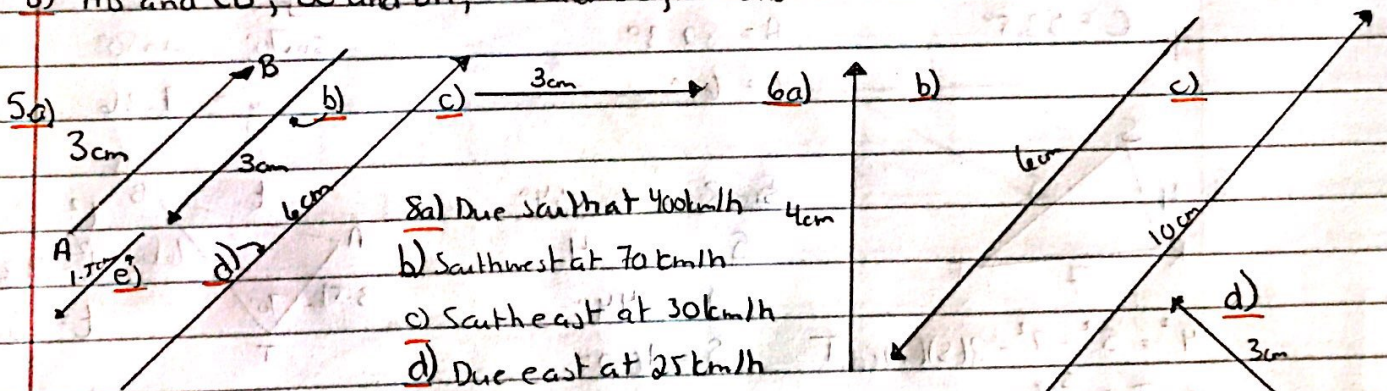 b) AB and CD,
5.a)
3cm
A
B
b)
3cm
c)
3cm
d)
6cm
e)
6a)
4cm
b)
6cm
c)
10cm
d)
3cm
8a) Due south at 400km/h
b) Southwest at 70km/h
c) Southeast at 30km/h
d) Due east at 25km/h